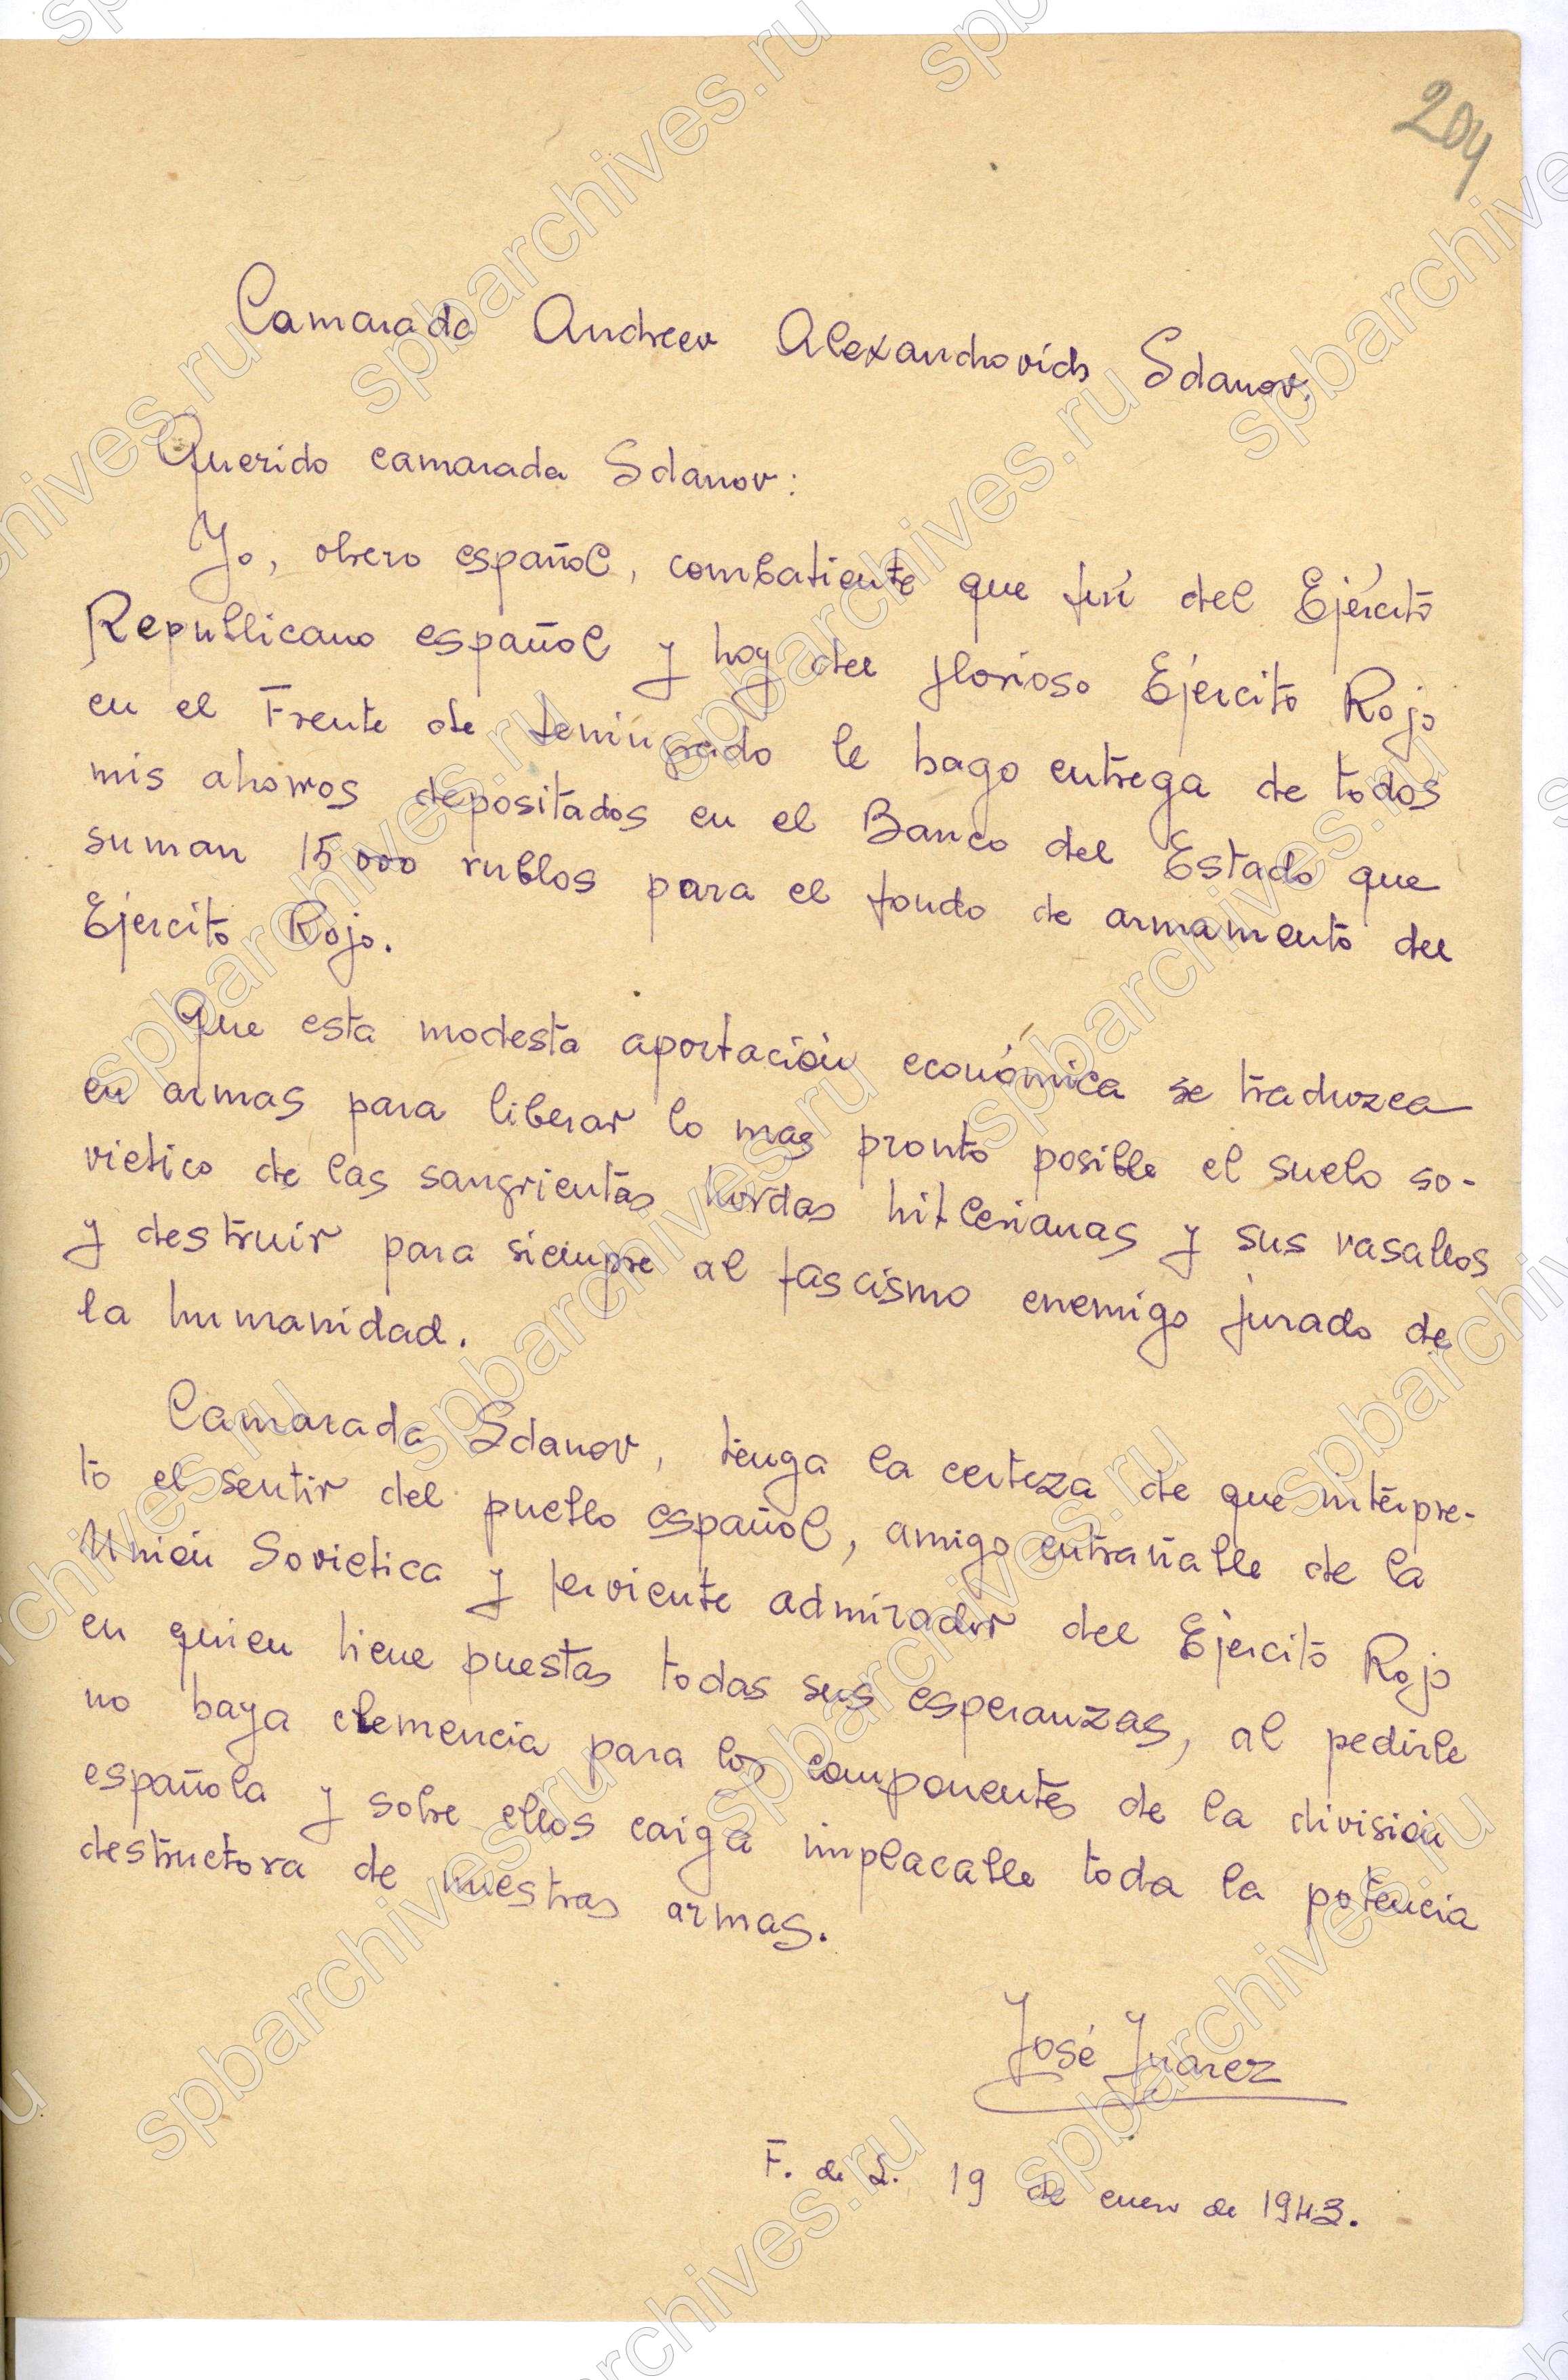 204
Camarada Andreev Alexandrovich Sdanov.
Querido camarada Sdanov:
Yo, obrero español, combatiente que fuí del Ejército
Republicano español y hoy del glorioso Ejército Rojo
en el Frente de Leningrado le hago entrega de todos
mis ahorros depositados en el Banco del Estado que
suman 15000 rublos para el fondo de armamento del
Ejercito Rojo.
Que esta modesta aportación económica se traduzca
en armas para liberar lo mas pronto posible el suelo so-
vietico de las sangrientas hordas hitlerianas y sus vasallos
y destruir para siempre al fascismo enemigo jurado de
la humanidad.
Camarada Sdanov, tenga la certeza de que interpre-
to el sentir del pueblo español, amigo entrañable de la
Unión Sovietica y ferviente admirador del Ejército Rojo
en quien tiene puestas todas sus esperanzas, al pedirle
no haya clemencia para los componentes de la división
española y sobre ellos caiga implacable toda la potencia
destructora de nuestras armas.
José Juarez
F. de L. 19 de enero de 1943.
spbarchives.ru